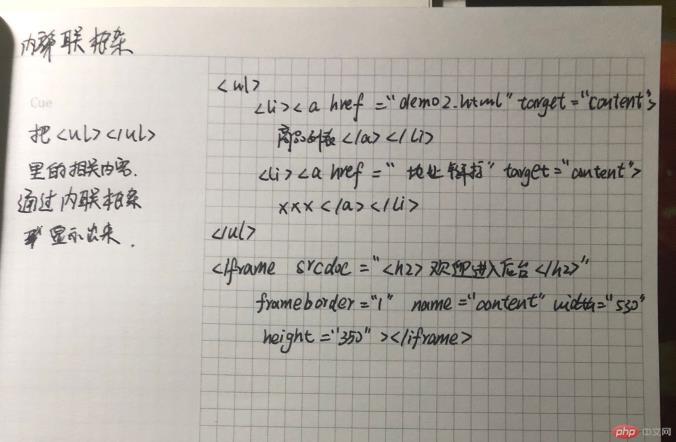 内联框架
Cue
把<ul></ul>
里的相关内容.
通过内联框架
显示出来.
<ul>
<li><a href="demo2.html" target="content">
商品列表</a></li>
<li><a href="地址链接" target="content">
xxx</a></li>
</ul>
<iframe srcdoc="<h2>欢迎进入后台</h2>"
frameborder="1" name="content" width="530"
height="350"></iframe>
php 中文网